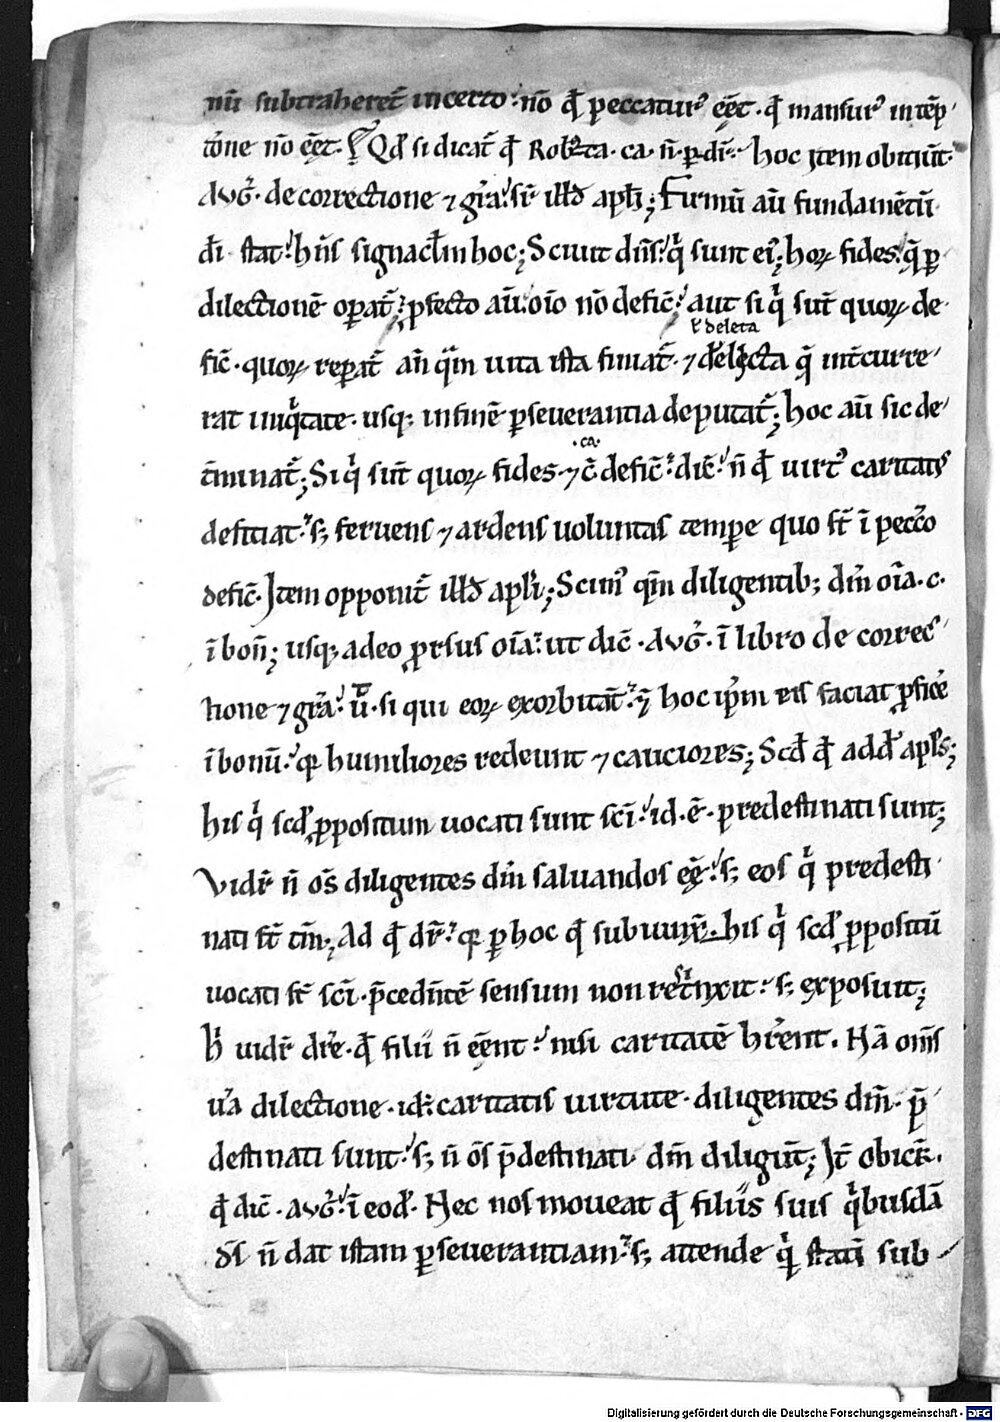 nū subtraheret̄ incerto· nō qđ peccatur᾽ eēt· qđ mansur᾽ in tēp
tōne nō eēt· Qđ si dicat̄ qđ Robrta· ca· n̄· p̱di· hoc item obiciūt·
AVG᾽· de correctione ⁊ grā· sr̄ illđ apłi; Firmū aū fundamētū
dī stat· hn̄s signacl̄m hoc; Scivit dn̄s qͥ sunt ei᾽; hoꝝ fides· q̄ ꝑ
dilectionē oꝑat̄· ꝓfecto aū· oīo nō defic̄· aut si qͥ sūt quoꝝ de
ł deleta
fic̄· quoꝝ reꝑat̄ an̄ q̄m uita ista finiat̄· ⁊ delecta q̄ int̄curre
rat iniqͥtate· usq; in finē ꝑseuerantia deputat̄; hoc aū sic de
·ca·
t̄minat̄; Si qͥ sūt quoꝝ fides· ⁊ c̄ defic̄· dic̄· n̄ qđ uirt᾽ caritatis
deficiat· s; feruens ⁊ ardens uoluntas tempe quo st̄ ī pecc̄o
defic̄· Item opponūt illđ apłi; Scim᾽ qm̄ diligentib; dm̄ oīa· c·
ī bon̄; usq; adeo ꝓrsus oīa· ut dic̄· AVG᾽· ī libro de correc
tione ⁊ grā· ū· si qui eoꝝ exorbitāt· ⁊ hoc ip̄m eis faciat ꝓficē
ī bonū· qꝛ humiliores redeunt ⁊ cautiores; Scđ qđ addt apłs;
his qͥ scđ ꝓpositum uocati sunt sc̄i· id· ē· predestinati sunt;
Vidr̄ n̄ os̄ diligentes dm̄ saluandos eē· s; eos qͥ predesti
nati st̄ tm̄; Ad qđ dr̄· qꝛ ꝑ hoc qđ subiunx̄· his qͥ scđ ꝓpositū
uocati st̄ sc̄i· p̄cedn̄tē sensum non restrinxit· s; exposuit;
h᾽ uidr̄ dr̄e· qđ filii n̄ eēnt· nisi caritatē hr̄ent· Nā om̄s
u᾽a dilectione· id· caritatis uirtute· diligentes dm̄· p̄
destinati sunt· s; n̄ os̄ p̄destinati dm̄ diligūt; It̄ obicit̄·
qđ dic̄· AVG᾽· ī eod᾽· Nec nos moueat qđ filiis suis qͥbusdā
ds̄ n̄ dat istam ꝑseuerantiam· s; attende qͥ statī sub
Digitalisierung gefördert durch die Deutsche Forschungsgemeinschaft - DFG